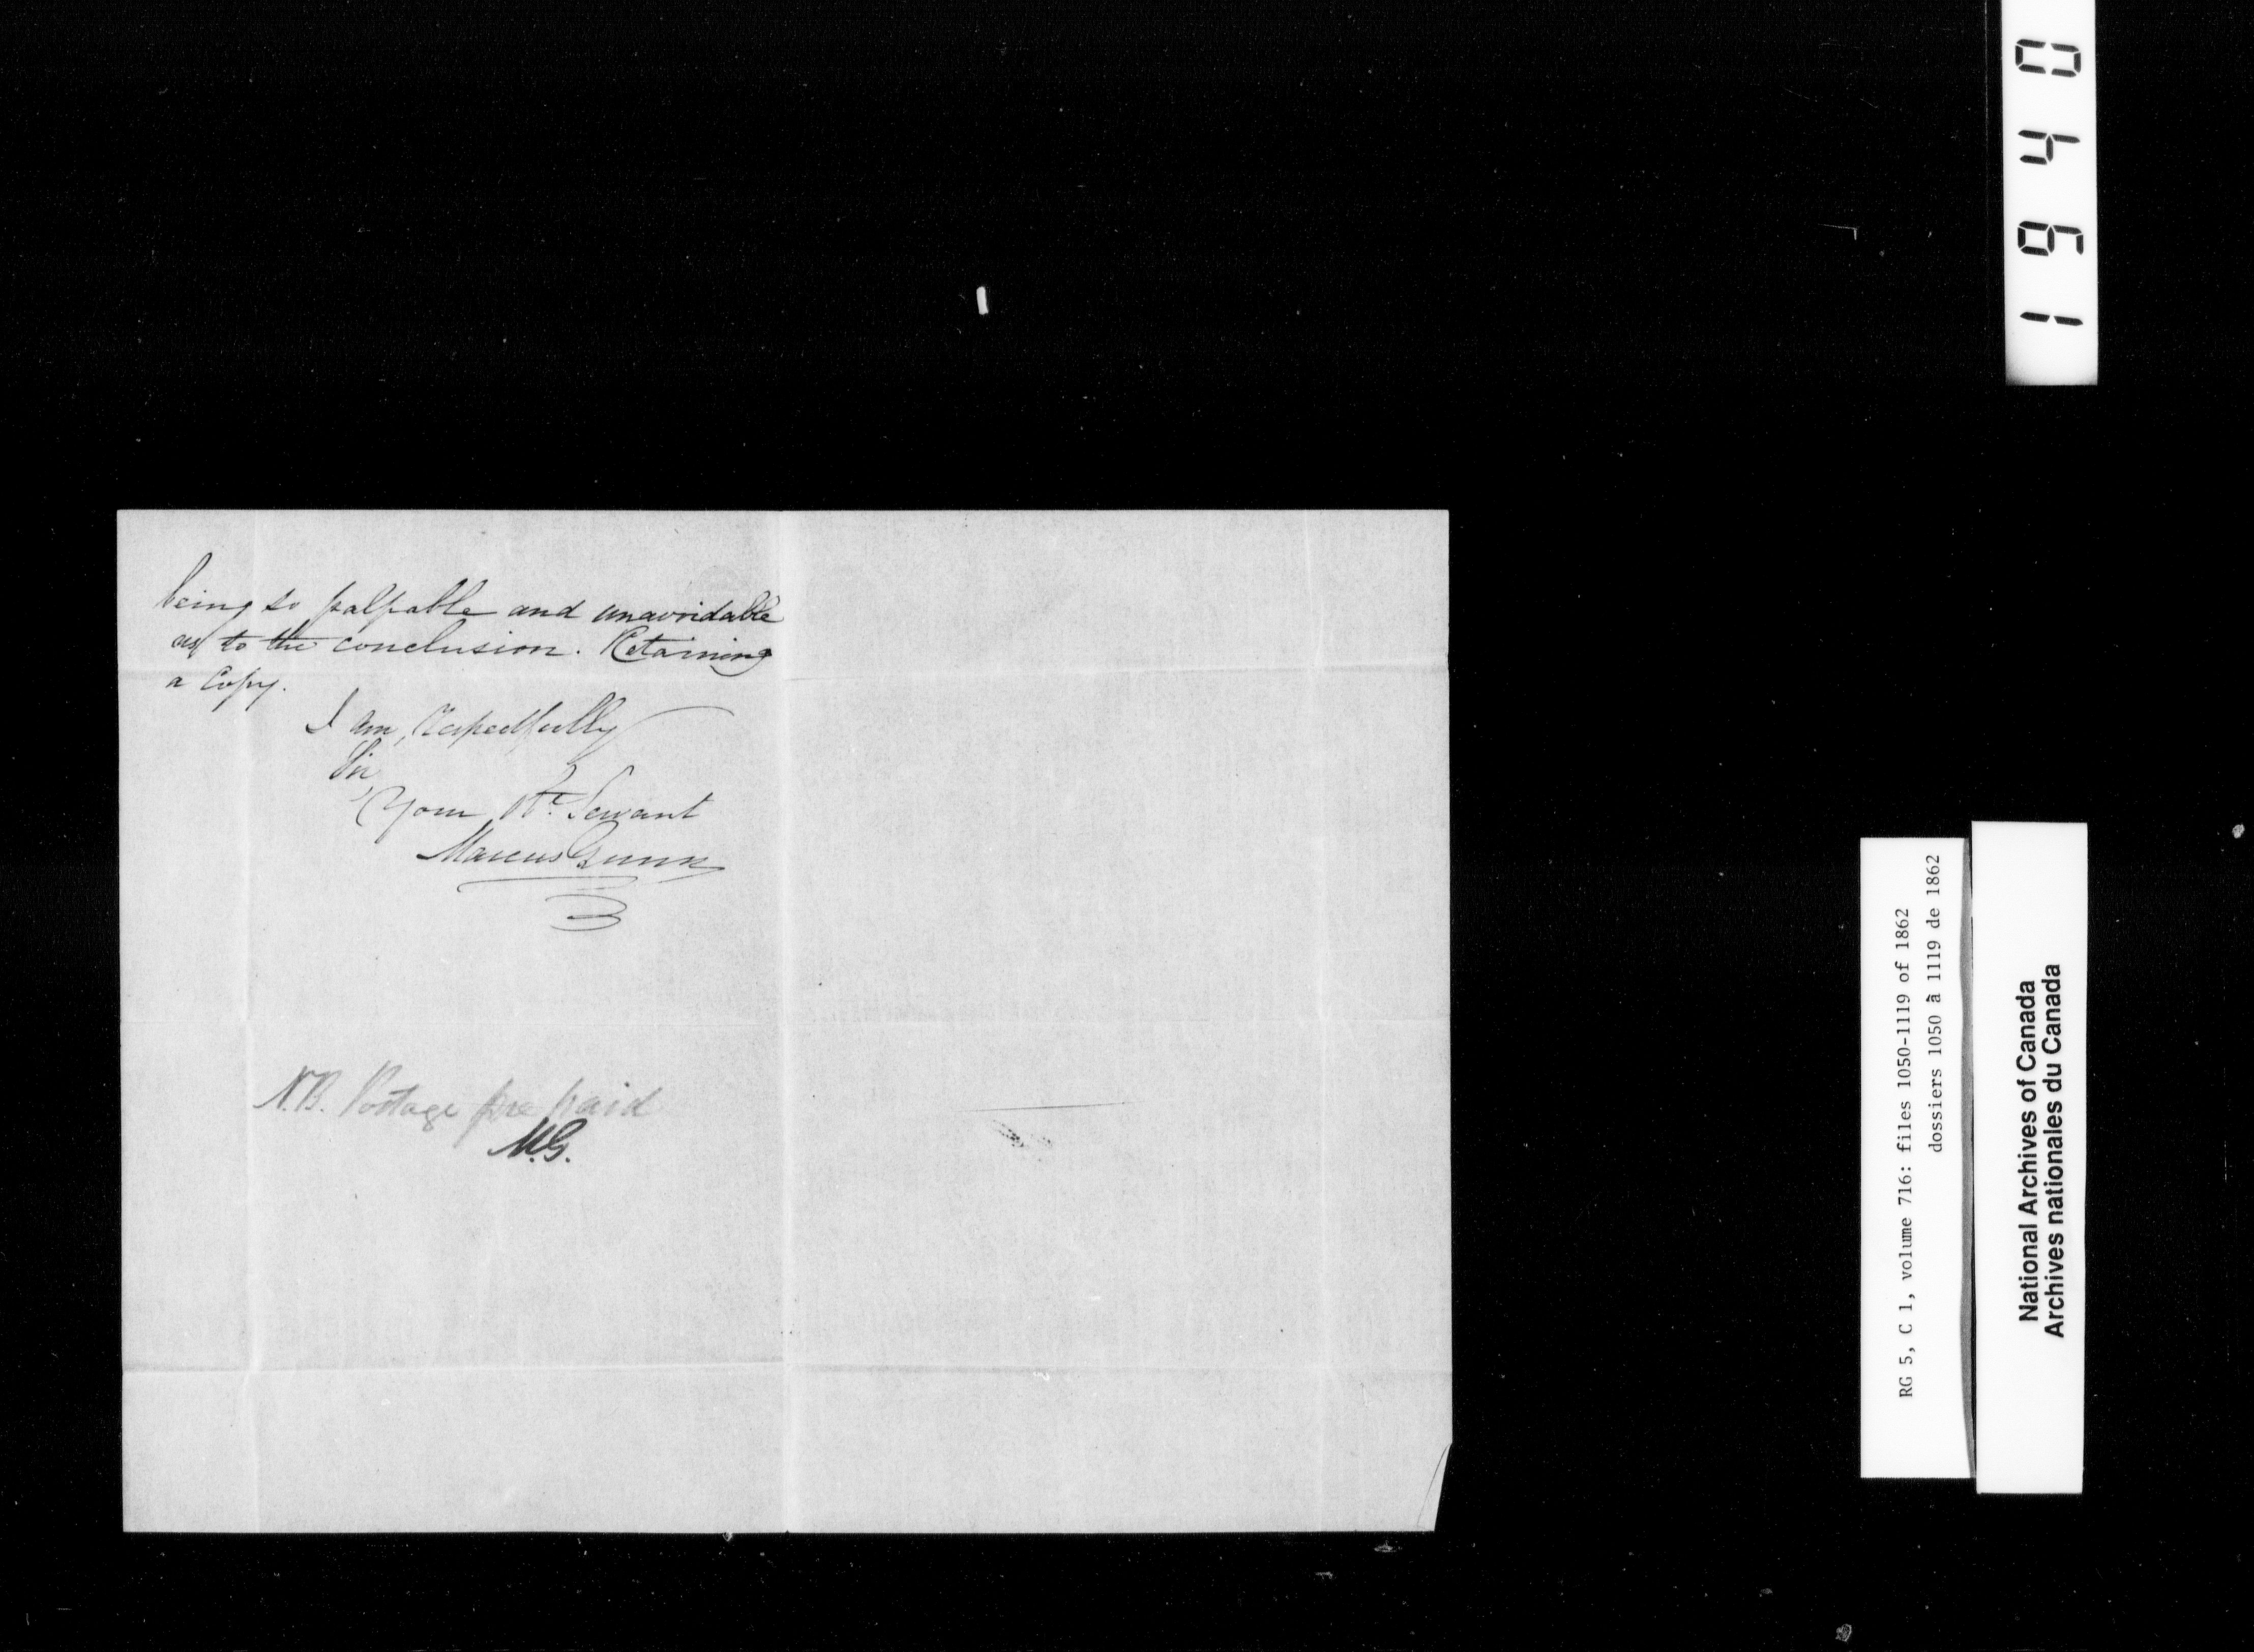 being so palpable and unavoidable
as to the conclusion. Retaining
a Copy.
I am, Respectfully
Sir,
Your Servant
Marcus Gunn
N.B. Postage pre paid
M.G.
1940
RG 5, C 1, volume 716: files 1050-1119 of 1862
dossiers 1050 à 1119 de 1862
National Archives of Canada
Archives nationales du Canada